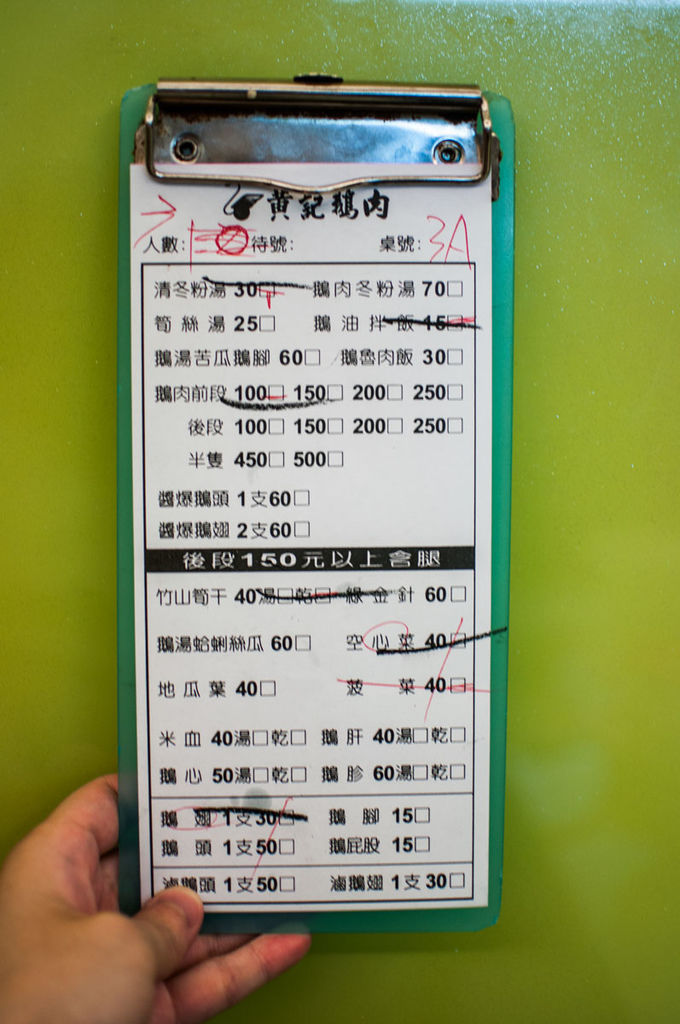 黃記鵝肉
人數: 待號: 桌號: 3A
清冬粉湯 30□ 鵝肉冬粉湯 70□
筍絲湯 25□ 鵝油拌飯 15□
鵝湯苦瓜鵝腳 60□ 鵝魯肉飯 30□
鵝肉前段 100□ 150□ 200□ 250□
後段 100□ 150□ 200□ 250□
半隻 450□ 500□
醬爆鵝頭 1支60□
醬爆鵝翅 2支60□
後段150元以上含腿
竹山筍干 40湯□乾□ 綠金針 60□
鵝湯蛤蜊絲瓜 60□ 空心菜 40□
地瓜葉 40□ 菠菜 40□
米血 40湯□乾□ 鵝肝 40湯□乾□
鵝心 50湯□乾□ 鵝胗 60湯□乾□
鵝翅 1支30□ 鵝腳 15□
鵝頭 1支50□ 鵝屁股 15□
滷鵝頭 1支50□ 滷鵝翅 1支30□